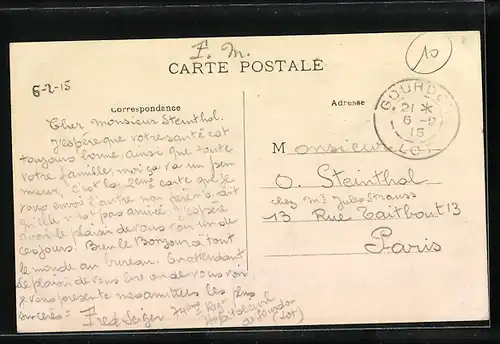 F. M.
10
CARTE POSTALE
6-2-15
Correspondance
Adresse
GOURDON
21 *
6 - 2
15
LOT
Cher Monsieur Steinthal.
J'espère que votre santé est
toujours bonne, ainsi que toute
votre famille, moi ça va un peu
mieux, c'est la 2ème carte que je
vous envoi l'autre
qu'elle n'est pas arrivée. J'espère
avoir le plaisir de vous voir un de
ces jours! Bien le Bonjour a tout
le monde au bureau. En attendant
le plaisir de vous lire on de vous voir
je vous presente mes amitiés les plus
sincères = Fred Seiger 74ème Regt
Hopital
de Gourdon
(Lot)
Monsieur
O. Steinthal
chez Mr Jules Strauss
13 Rue Taitbout 13
Paris